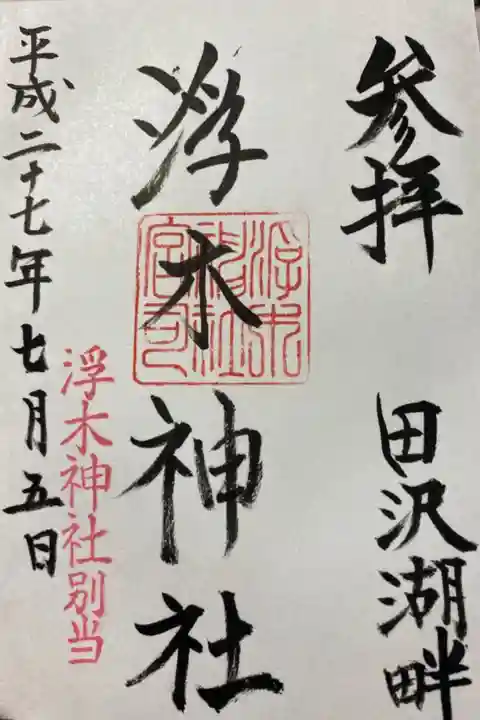 参拝 田沢湖畔
浮木神社
浮木
神社
宮司
浮木神社別当
平成二十七年七月五日